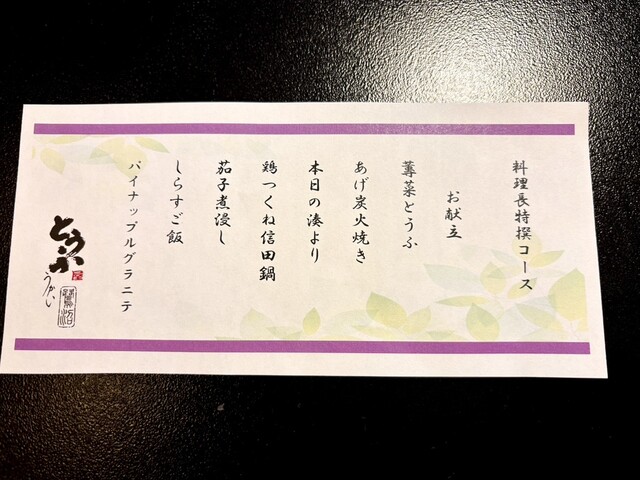 料理長特撰コース
お献立
蓴菜とうふ
あげ炭火焼き
本日の湊より
鶏つくね信田鍋
茄子煮浸し
しらすご飯
パイナップルグラニテ
とうふ
うかい
鷺沼